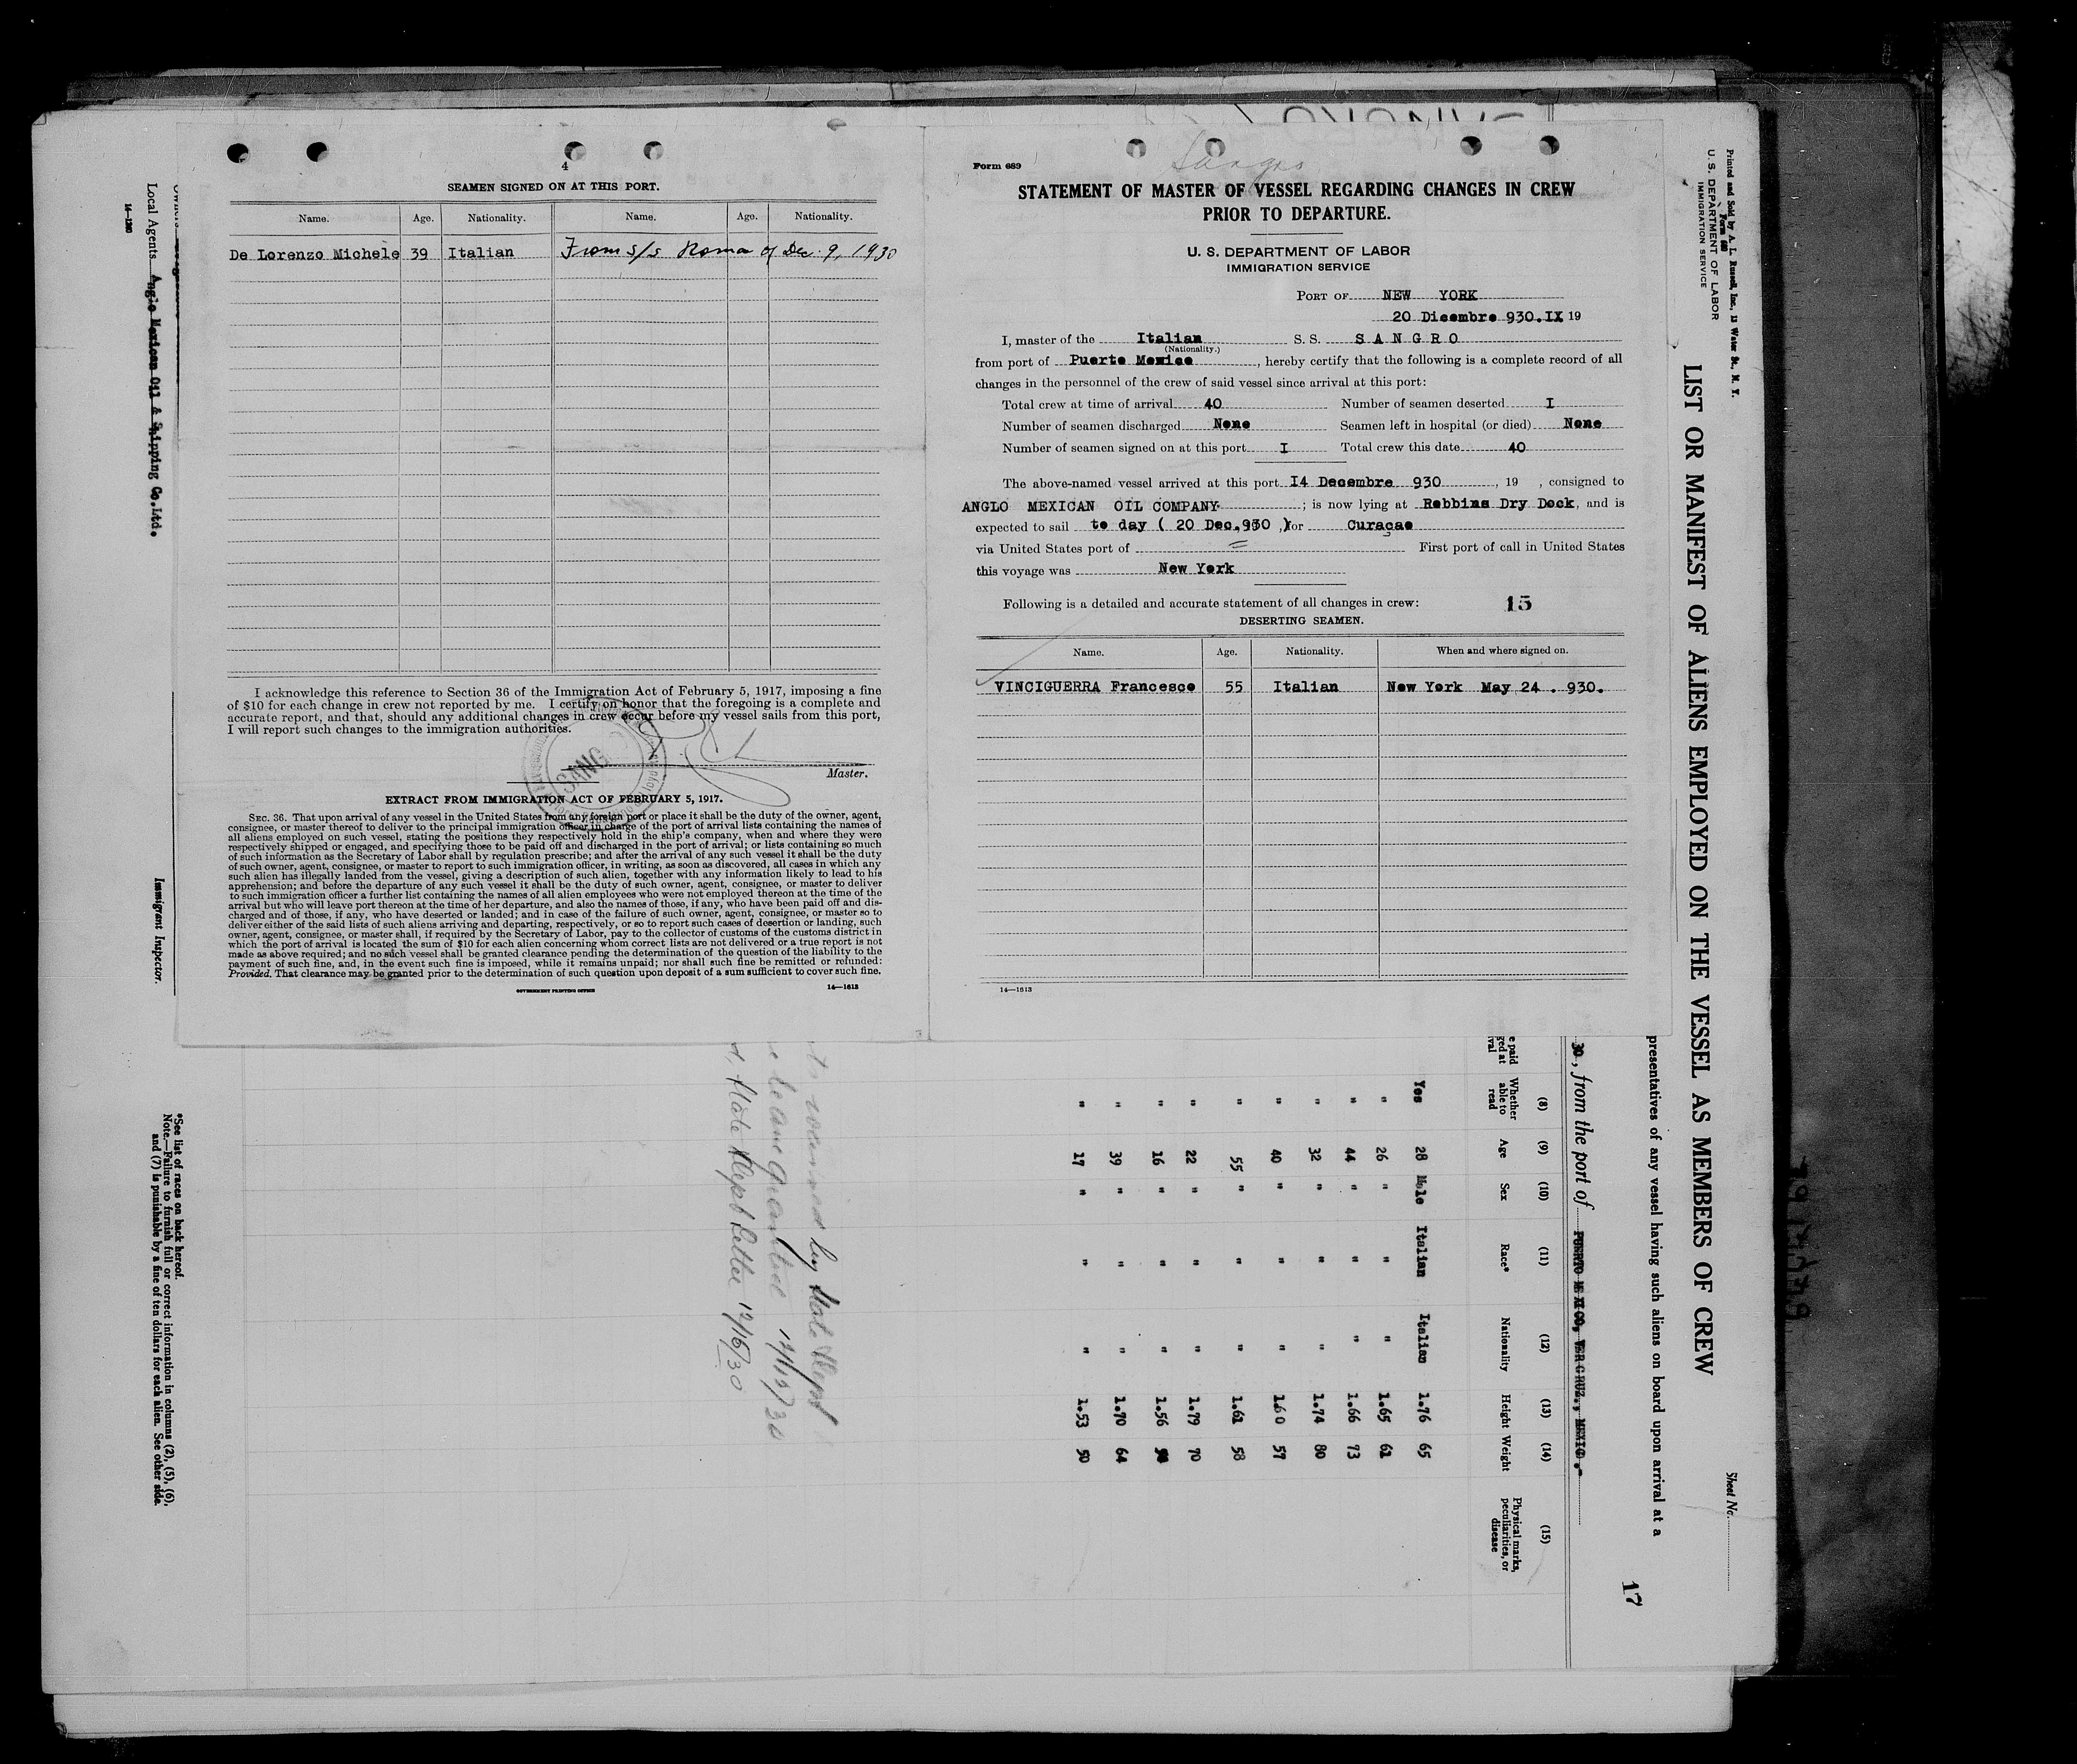 4
SEAMEN SIGNED ON AT THIS PORT.
Name. Age. Nationality. Name. Age. Nationality.
De Lorenzo Michele 39 Italian From s/s Roma of Dec. 9, 1930
I acknowledge this reference to Section 36 of the Immigration Act of February 5, 1917, imposing a fine
of $10 for each change in crew not reported by me. I certify on honor that the foregoing is a complete and
accurate report, and that, should any additional changes in crew occur before my vessel sails from this port,
I will report such changes to the immigration authorities.
SANG
Master.
EXTRACT FROM IMMIGRATION ACT OF FEBRUARY 5, 1917.
SEC. 36. That upon arrival of any vessel in the United States from any foreign port or place it shall be the duty of the owner, agent,
consignee, or master thereof to deliver to the principal immigration officer in charge of the port of arrival lists containing the names of
all aliens employed on such vessel, stating the positions they respectively hold in the ship's company, when and where they were
respectively shipped or engaged, and specifying those to be paid off and discharged in the port of arrival; or lists containing so much
of such information as the Secretary of Labor shall by regulation prescribe; and after the arrival of any such vessel it shall be the duty
of such owner, agent, consignee, or master to report to such immigration officer, in writing, as soon as discovered, all cases in which any
such alien has illegally landed from the vessel, giving a description of such alien, together with any information likely to lead to his
apprehension; and before the departure of any such vessel it shall be the duty of such owner, agent, consignee, or master to deliver
to such immigration officer a further list containing the names of all alien employees who were not employed thereon at the time of the
arrival but who will leave port thereon at the time of her departure, and also the names of those, if any, who have been paid off and dis-
charged and of those, if any, who have deserted or landed; and in case of the failure of such owner, agent, consignee, or master so to
deliver either of the said lists of such aliens arriving and departing, respectively, or so to report such cases of desertion or landing, such
owner, agent, consignee, or master shall, if required by the Secretary of Labor, pay to the collector of customs of the customs district in
which the port of arrival is located the sum of $10 for each alien concerning whom correct lists are not delivered or a true report is not
made as above required; and no such vessel shall be granted clearance pending the determination of the question of the liability to the
payment of such fine, and, in the event such fine is imposed, while it remains unpaid; nor shall such fine be remitted or refunded:
Provided, That clearance may be granted prior to the determination of such question upon deposit of a sum sufficient to cover such fine.
GOVERNMENT PRINTING OFFICE 14—1513
Form 689
Sangro
STATEMENT OF MASTER OF VESSEL REGARDING CHANGES IN CREW
PRIOR TO DEPARTURE.
U. S. DEPARTMENT OF LABOR
IMMIGRATION SERVICE
PORT OF NEW YORK
20 Dicembre 930.IX 19
I, master of the Italian S. S. SANGRO
(Nationality.)
from port of Puerto Mexico, hereby certify that the following is a complete record of all
changes in the personnel of the crew of said vessel since arrival at this port:
Total crew at time of arrival 40 Number of seamen deserted I
Number of seamen discharged None Seamen left in hospital (or died) None
Number of seamen signed on at this port I Total crew this date 40
The above-named vessel arrived at this port I4 Decembre 930, 19 , consigned to
ANGLO MEXICAN OIL COMPANY; is now lying at Robbins Dry Dock, and is
expected to sail to day ( 20 Dec.930 ,) for Curaçao
via United States port of = First port of call in United States
this voyage was New York
Following is a detailed and accurate statement of all changes in crew: 15
DESERTING SEAMEN.
Name. Age. Nationality. When and where signed on.
VINCIGUERRA Francesco 55 Italian New York May 24 . 930.
14—1513
Printed and Sold by A. L. Russell, Inc., 13 Water St., N. Y.
Form 689
U. S. DEPARTMENT OF LABOR
IMMIGRATION SERVICE
LIST OR MANIFEST OF ALIENS EMPLOYED ON THE VESSEL AS MEMBERS OF CREW
Sheet No.
presentatives of any vessel having such aliens on board upon arrival at a
17
30, from the port of PUERTO MEXICO, VERCRUZ., MEXICO.-
(8) (9) (10) (11) (12) (13) (14) (15)
Whether able to read Age Sex Race* Nationality Height Weight Physical marks, peculiarities, or disease
Yes 28 Male Italian Italian 1.76 65
" 26 " " " 1.65 61
" 44 " " " 1.66 73
" 32 " " " 1.74 80
" 40 " " " 1.60 57
" 55 " " " 1.61 58
" 22 " " " 1.79 70
" 16 " " " 1.56
" 39 " " " 1.70 64
" 17 " " " 1.53 50
by State Dept
12/15/30
State Dept Letter 12/16/30
*See list of races on back hereof.
Note.—Failure to furnish full or correct information in columns (2), (5), (6),
and (7) is punishable by a fine of ten dollars for each alien. See other side.
Local Agents Anglo Mexican Oil & Shipping Co.Ltd.
Immigrant Inspector.
14—1240